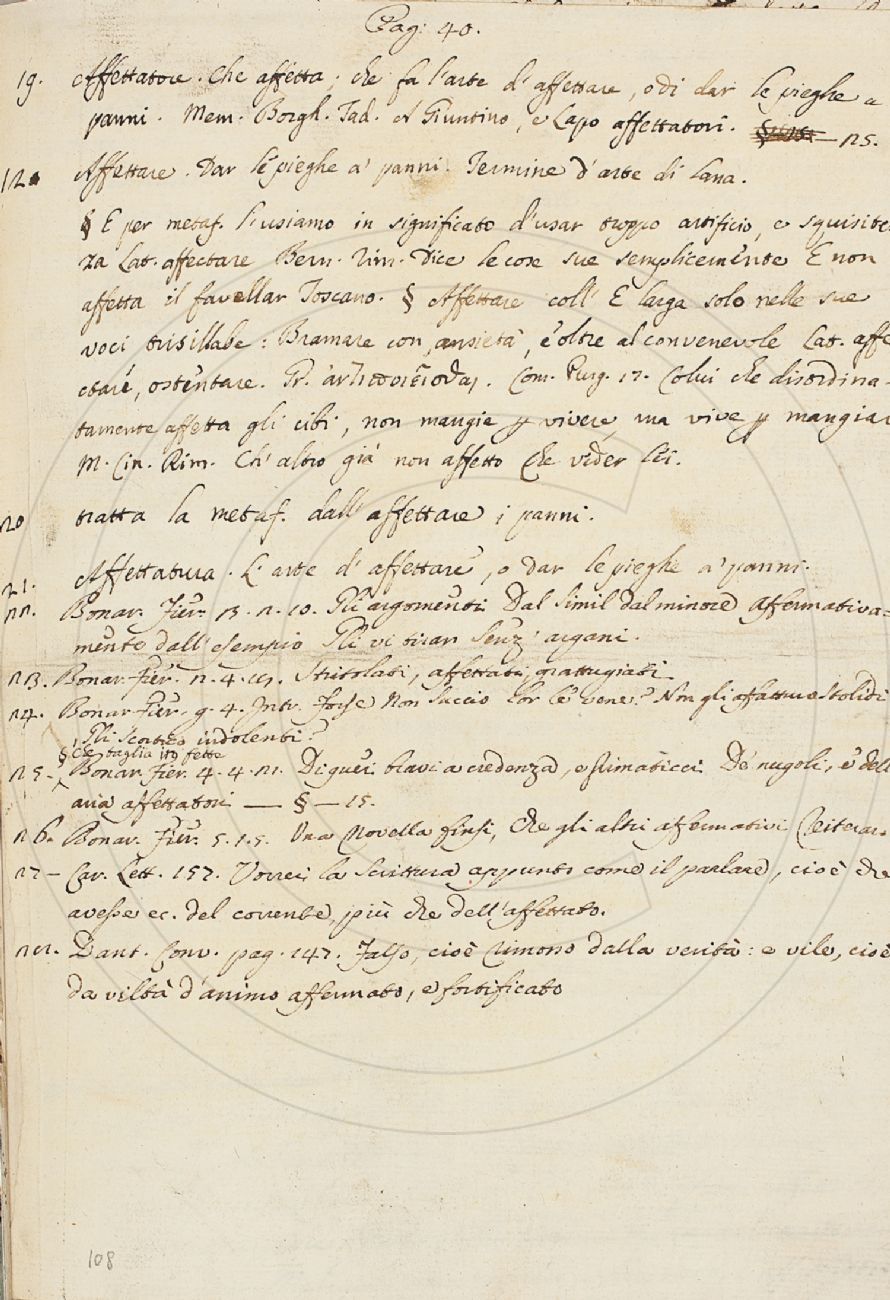 Pag: 40.
19. Affettatore. Che affetta; che fa l'arte d'affettare, o di dar le pieghe a
panni. Mem. Borgh. Tad. et Giuntino, e Lapo affettatori. — 25.
12 Affettare. Dar le pieghe a' panni. Termine d'arte di Lana.
§ E per metaf. l'usiamo in significato d'usar troppo artificio, e squisitez
za Lat. affectare Bern. Rim. Dice le cose sue semplicemente E non
affetta il favellar Toscano. § Affettare coll' E larga solo nelle sue
voci trisillabe: Bramare con ansietà, e oltre al convenevole Lat. affe
ctare, ostentare. Gr. Com. Purg. 17. Colui che disordina-
tamente affetta gli cibi, non mangia p vivere, ma vive p mangiar
M. Cin. Rim. Ch' altro già non affetto che veder lei.
20 tratta la metaf. dall' affettare i panni.
21. Affettatura. L' arte d' affettare, o dar le pieghe a' panni.
22. Bonar. Fier. 3. 2. 10. Gli argomenti Dal simil dal minore affermativa=
mente dall' esempio Gli vi tiran senz' argani.
23. Bonar. Fier. 2. 4. 19. Stritolati, affettati, grattugiati.
24. Bonar. Fier. g. 4. Intr. Forse Non succio lor le vene? Non gli affatturo stolidi
Gli scortico indolenti?
§ che taglia in fette
25 - Bonar. Fier. 4. 4. 21. Di quei bravi a credenza, e stimaticci De' nugoli, e dell
aria affettatori — § — 15.
26. Bonar. Fier. 5. 1. 5. Una Novella finsi, Che gli altri affermativi Reiterar.
27 - Car. Lett. 157. Vorrei la scrittura appunto come il parlare, cioè che
avesse ec. del corrente, più che dell' affettato.
28. Dant. Conv. pag. 147. Falso, cioè rimosso dalla verità: e vile, cioè
da viltà d'animo affermato, e fortificato
108